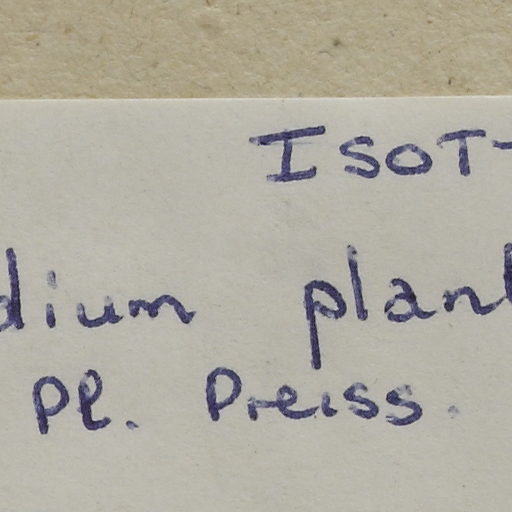 ISOT-
dium plant
Pl. Preiss.